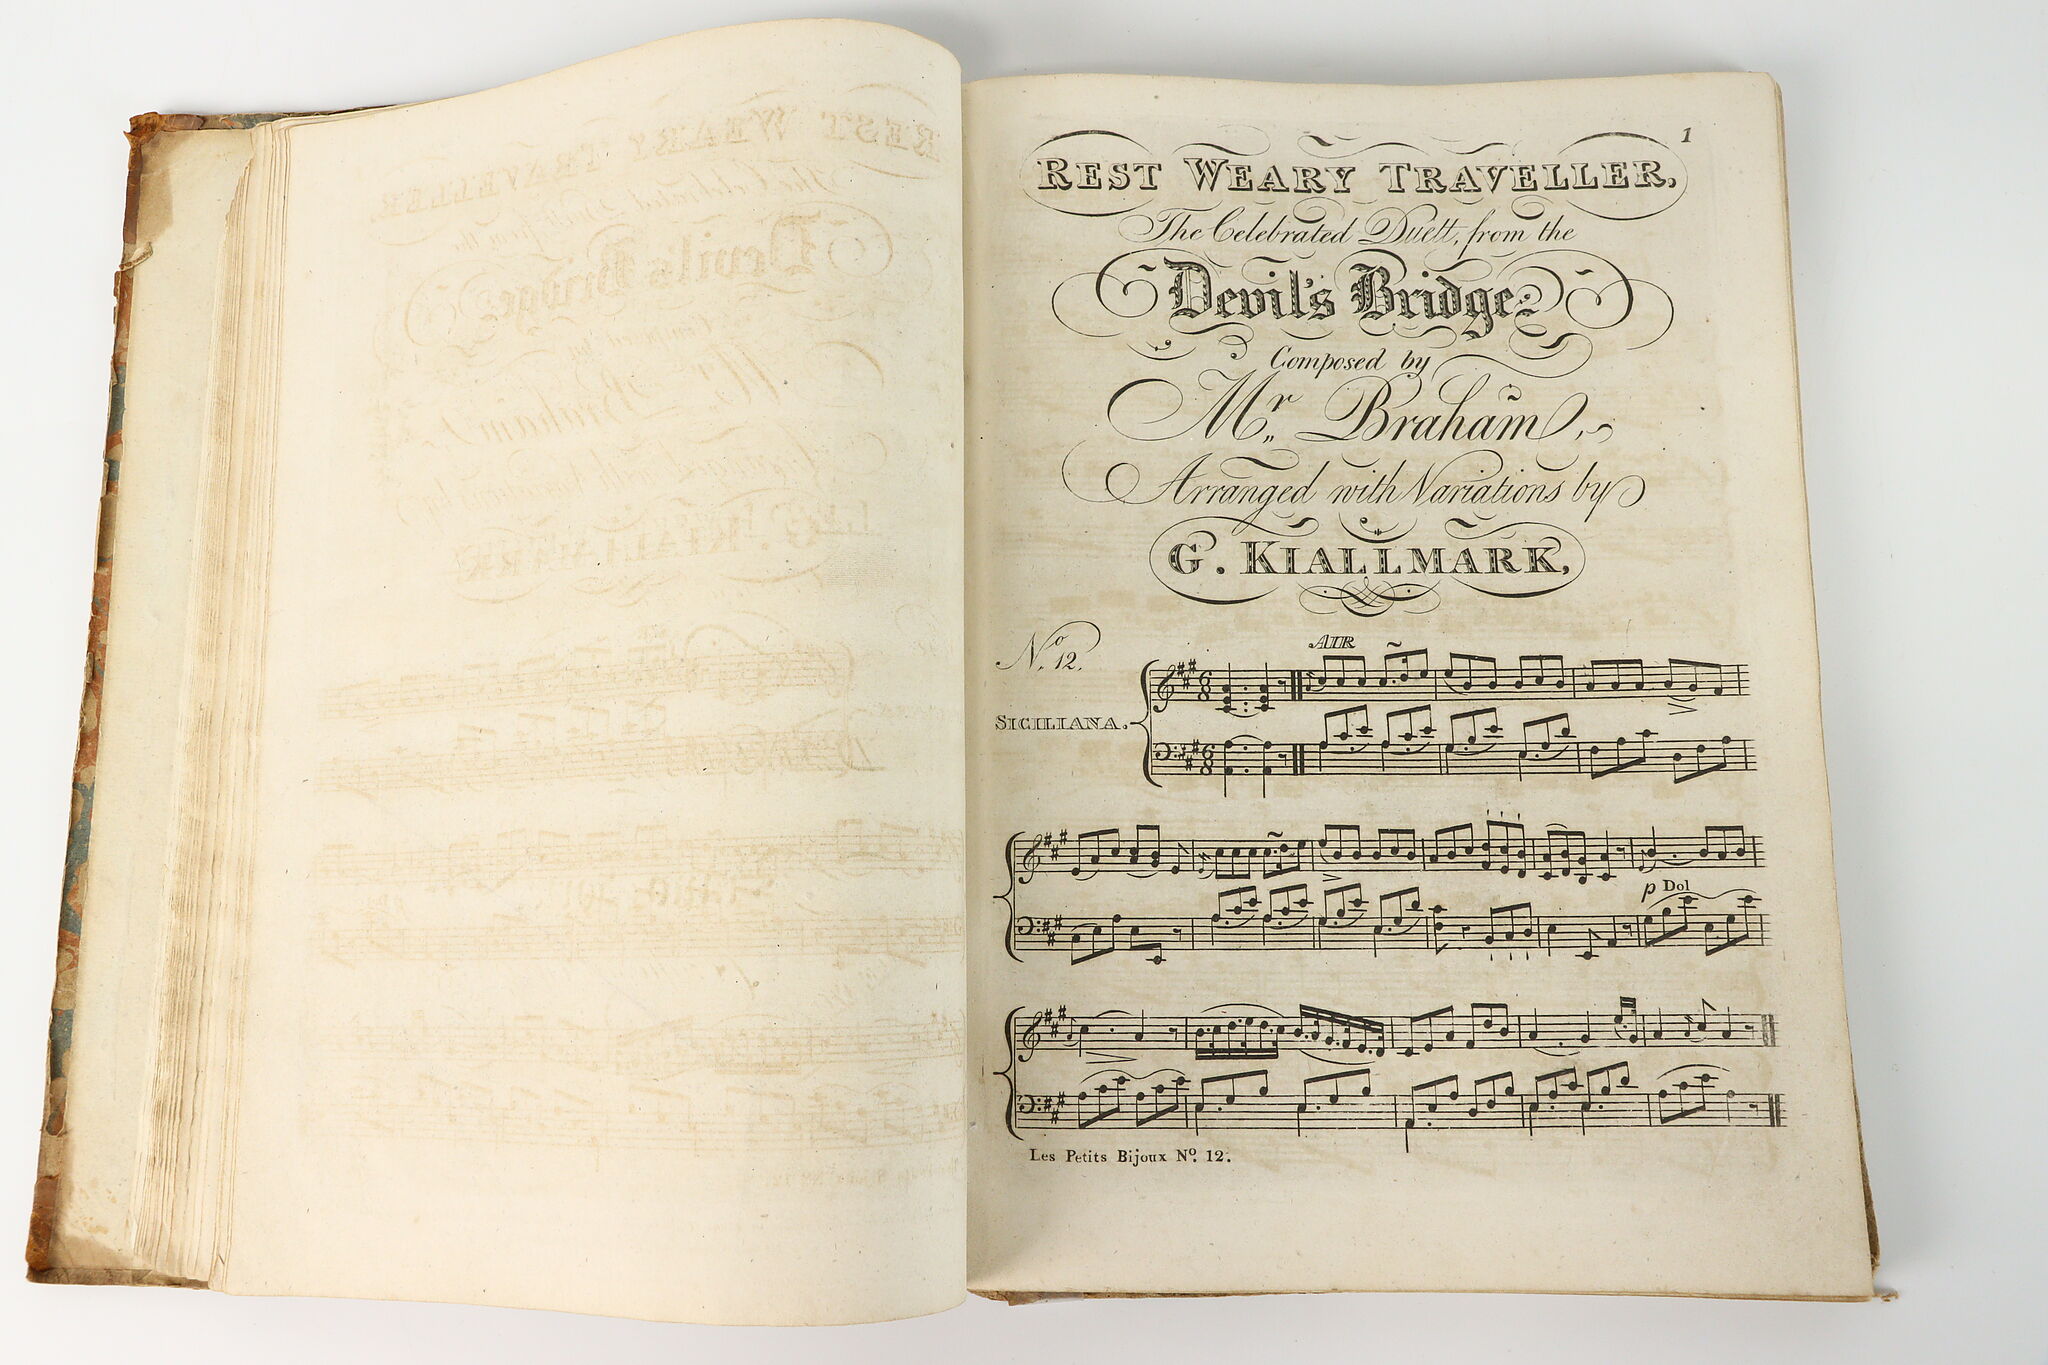 1
REST WEARY TRAVELLER,
The Celebrated Duett, from the
Devil's Bridge;
Composed by
Mr. Braham,
Arranged with Variations by
G. KIALLMARK,
No. 12.
AIR
SICILIANA.
p Dol
Les Petits Bijoux No. 12.